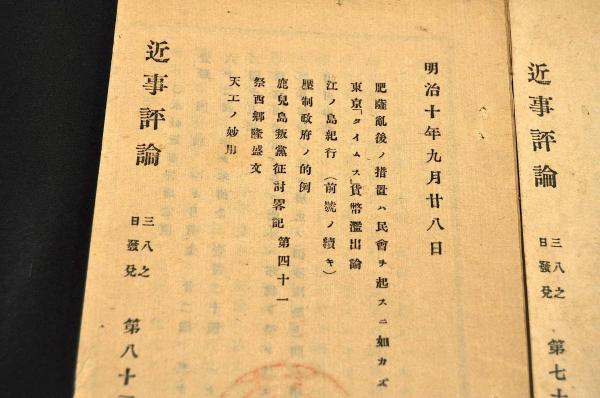 近事評論
三八之
日發兌
第七十
明治十年九月廿八日
肥薩亂後ノ措置ハ民會ヲ起スニ如カズ
東京「タイムス」貨幣濫出論
江ノ島紀行(前號ノ續キ)
壓制政府ノ的例
鹿兒島叛黨征討畧記 第四十一
祭西鄕隆盛文
天工ノ妙用
近事評論
三八之
日發兌
第八十一